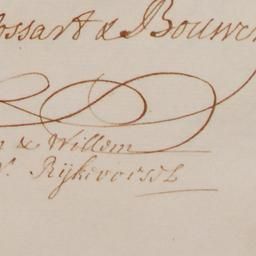 ossart & Bouwe
n & Willem
Rijkevorssel